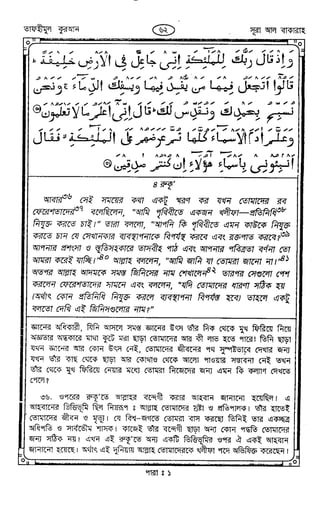 তাফহীমুল কুরআন
৬২
সূরা আল বাকারাহ
وَإِذْ قَالَ رَبُّكَ لِلْمَلٰٓئِكَةِ إِنِّي جَاعِلٌ فِي الْأَرْضِ خَلِيفَةً ۖ
قَالُوٓا أَتَجْعَلُ فِيهَا مَن يُفْسِدُ فِيهَا وَيَسْفِكُ الدِّمَآءَ ۚ وَنَحْنُ
نُسَبِّحُ بِحَمْدِكَ وَنُقَدِّسُ لَكَ ۖ قَالَ إِنِّيٓ أَعْلَمُ مَا لَا تَعْلَمُونَ ﴿٣٠﴾
وَعَلَّمَ آدَمَ الْأَسْمَآءَ كُلَّهَا ثُمَّ عَرَضَهُمْ عَلَى الْمَلٰٓئِكَةِ ۙ فَقَالَ
أَنۢبِـُٔونِي بِأَسْمَآءِ هٰٓؤُلَآءِ إِن كُنتُمْ صٰدِقِينَ ﴿٣١﴾
৪ রুকূ'
আবার৩৬ সেই সময়ের কথা একটু স্মরণ কর যখন তোমাদের রব
ফেরেশতাদের৩৭ বলেছিলেন, “আমি পৃথিবীতে একজন খলীফা—প্রতিনিধি৩৮
নিযুক্ত করতে চাই।” তারা বললো, “আপনি কি পৃথিবীতে এমন কাউকে নিযুক্ত
করতে চান যে সেখানকার ব্যবস্থাপনাকে বিপর্যস্থ করবে এবং রক্তপাত করবে?৩৯
আপনার প্রশংসা ও স্তুতিসহকারে তাসবীহ পাঠ এবং আপনার পবিত্রতা বর্ণনা তো
আমরা করেই যাচ্ছি।”৪০ আল্লাহ বললেন, “আমি জানি যা তোমরা জানো না।”৪১
অতপর আল্লাহ আদমকে সমস্ত জিনিসের নাম শেখালেন৪২ তারপর সেগুলো পেশ
করলেন ফেরেশতাদের সামনে এবং বললেন, “যদি তোমাদের ধারণা সঠিক হয়
(অর্থাৎ কোন প্রতিনিধি নিযুক্ত করলে ব্যবস্থাপনা বিপর্যস্ত হবে) তাহলে একটু
বলতো দেখি এই জিনিসগুলোর নাম?”
জ্ঞানের অধিকারী, যিনি আসলে সমস্ত জ্ঞানের উৎস তাঁর দিক থেকে মুখ ফিরিয়ে নিয়ে
অজ্ঞতার অন্ধকারে মাথা কুটে মরা ছাড়া তোমাদের আর কী লাভ হতে পারে। তিনি ছাড়া
যখন জ্ঞানের আর কোন উৎস নেই, তোমাদের জীবনের পথ সুস্পষ্টভাবে দেখার জন্য
যখন তাঁর কাছ থেকে ছাড়া আর কোথাও থেকে আলো পাওয়ার সম্ভাবনা নেই তখন
তাঁর থেকে মুখ ফিরিয়ে নেয়ার মধ্যে তোমরা নিজেদের জন্য এমন কি কল্যাণ দেখতে
পেলে?
৩৬. ওপরের রুকূ'তে আল্লাহর বন্দেগী করার আহবান জানানো হয়েছিল। এ
আহবানের ভিত্তিভূমি ছিল নিম্নরূপ : আল্লাহ তোমাদের স্রষ্টা ও প্রতিপালক। তাঁর হাতেই
তোমাদের জীবন ও মৃত্যু। যে বিশ্ব-জগতে তোমরা বাস করছো তিনিই তার একচ্ছত্র
অধিপতি ও সার্বভৌম শাসক। কাজেই তাঁর বন্দেগী ছাড়া অন্য কোন পদ্ধতি তোমাদের
জন্য সঠিক নয়। এখন এই রুকূ'তে অন্য একটি ভিত্তিভূমির ওপর ঐ একই আহবান
জানানো হয়েছে। অর্থাৎ এই দুনিয়ায় আল্লাহ তোমাদেরকে খলীফা পদে অভিষিক্ত করেছেন।
পারা : ১